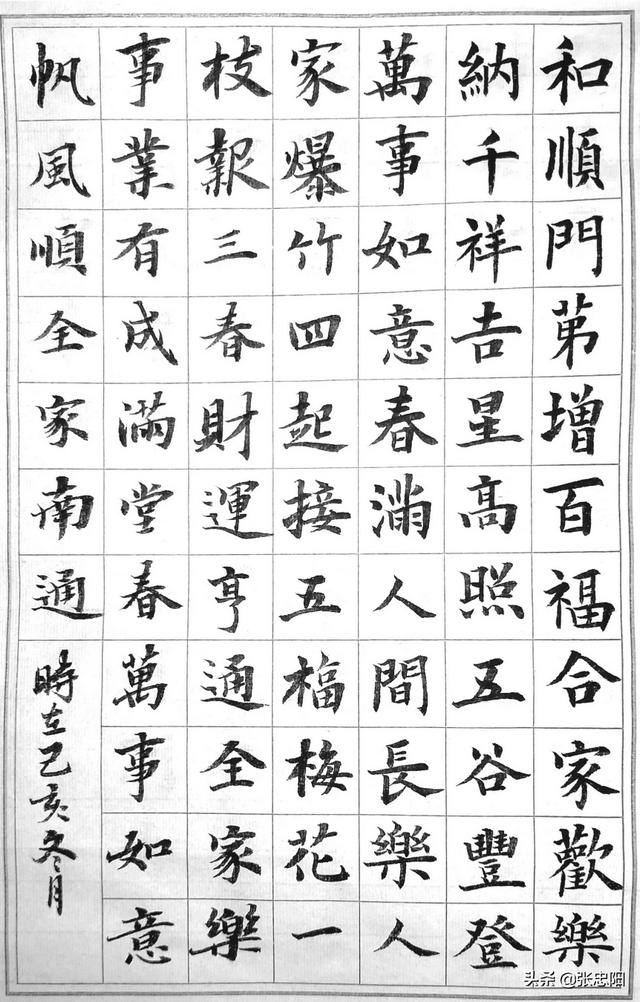 和順門苐增百福合家歡樂
納千祥吉星高照五谷豐登
萬事如意春滿人間長樂人
家爆竹四起接五福梅花一
枝報三春財運亨通全家樂
事業有成滿堂春萬事如意
帆風順全家南通
時在己亥冬月
头条 @张忠阳